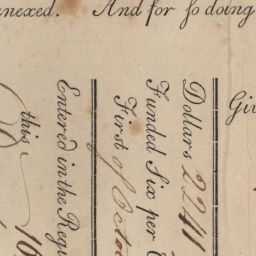 nexed. And for so doing
Giv
Dollars 2241
Funded Six per C
First of Octo
Entered in the Regi
this 16